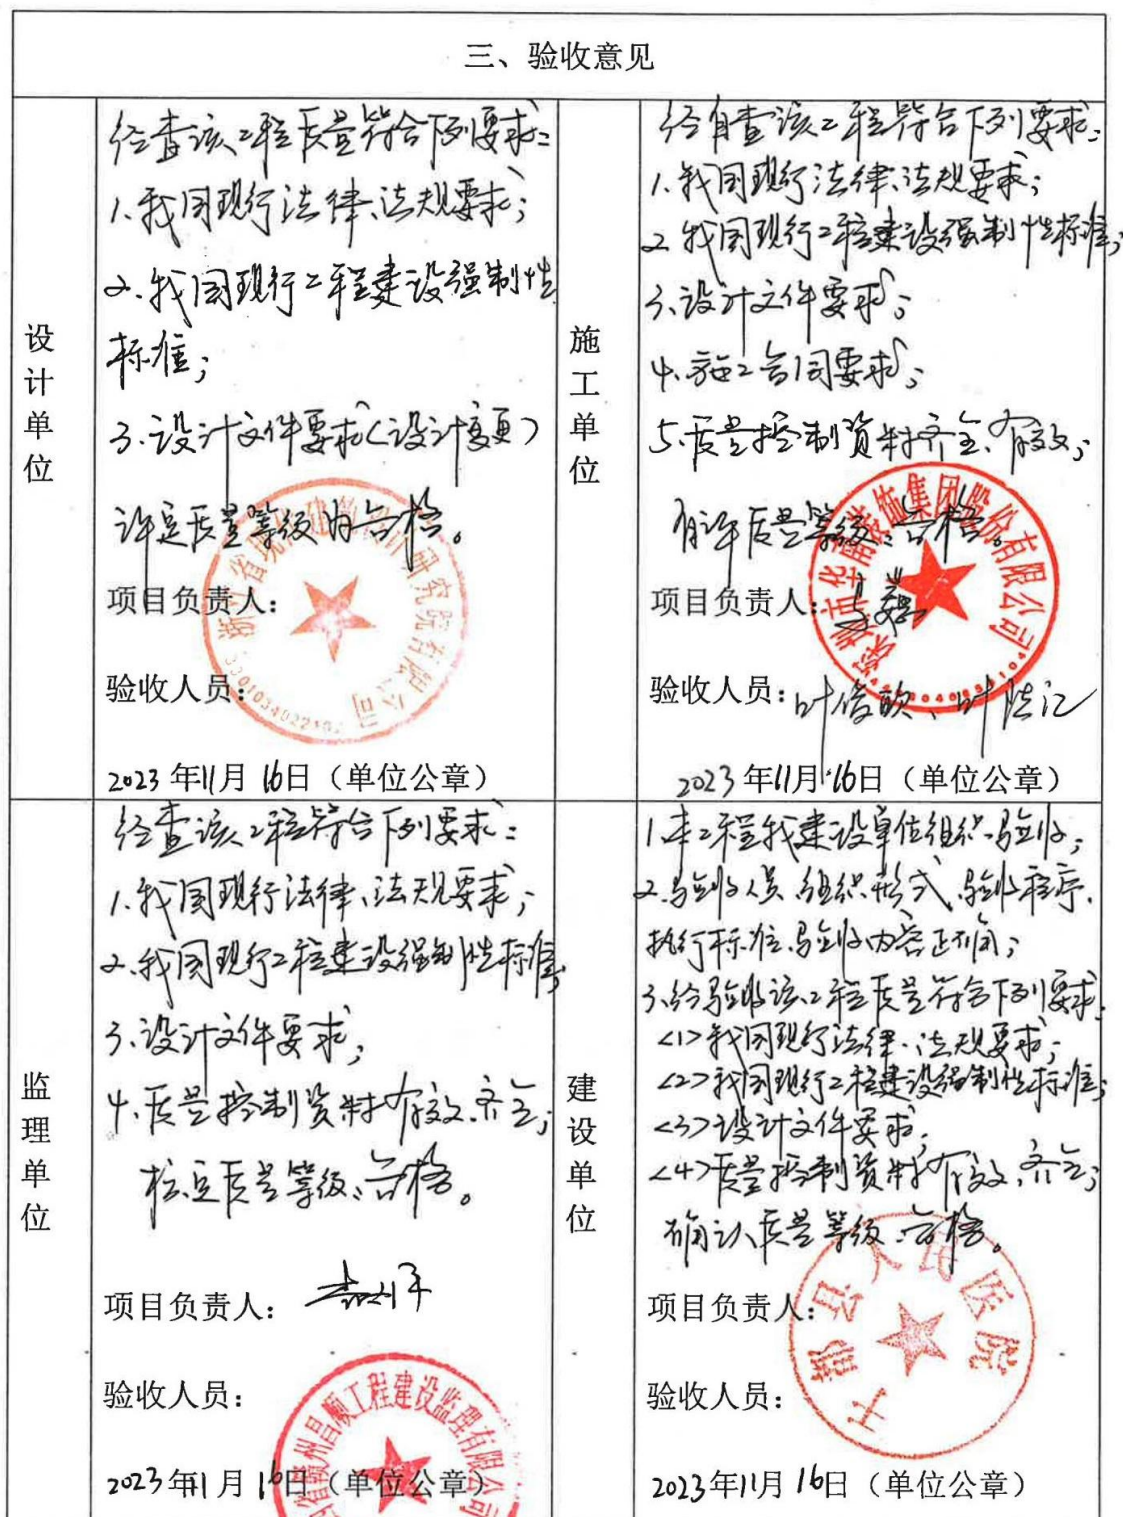 三、验收意见
设计单位
经查该工程质量符合下列要求:
1.我国现行法律、法规要求;
2.我国现行工程建设强制性
标准;
3.设计文件要求(设计变更)
评定质量等级为合格。
项目负责人:
验收人员:
2023年11月16日(单位公章)
3301034022
施工单位
经自查该工程符合下列要求:
1.我国现行法律、法规要求;
2.我国现行工程建设强制性标准;
3.设计文件要求;
4.施工合同要求;
5.质量控制资料齐全、有效;
自评质量等级:合格。
深圳市华南装饰集团股份有限公司
项目负责人:
验收人员:叶俊欧、叶
2023年11月16日(单位公章)
监理单位
经查该工程符合下列要求:
1.我国现行法律、法规要求;
2.我国现行工程建设强制性标准;
3.设计文件要求;
4.质量控制资料有效、齐全;
核定质量等级:合格。
项目负责人:
验收人员:
省赣州昌顺工程建设监理有限公司
2023年11月16日(单位公章)
建设单位
1.本工程我建设单位组织验收;
2.验收人员、组织形式、验收程序、
执行标准、验收内容正确;
3.经验收该工程质量符合下列要求:
<1>我国现行法律、法规要求;
<2>我国现行工程建设强制性标准;
<3>设计文件要求;
<4>质量控制资料有效、齐全;
确认质量等级:合格。
于都县人民医院
项目负责人:
验收人员:
2023年11月16日(单位公章)